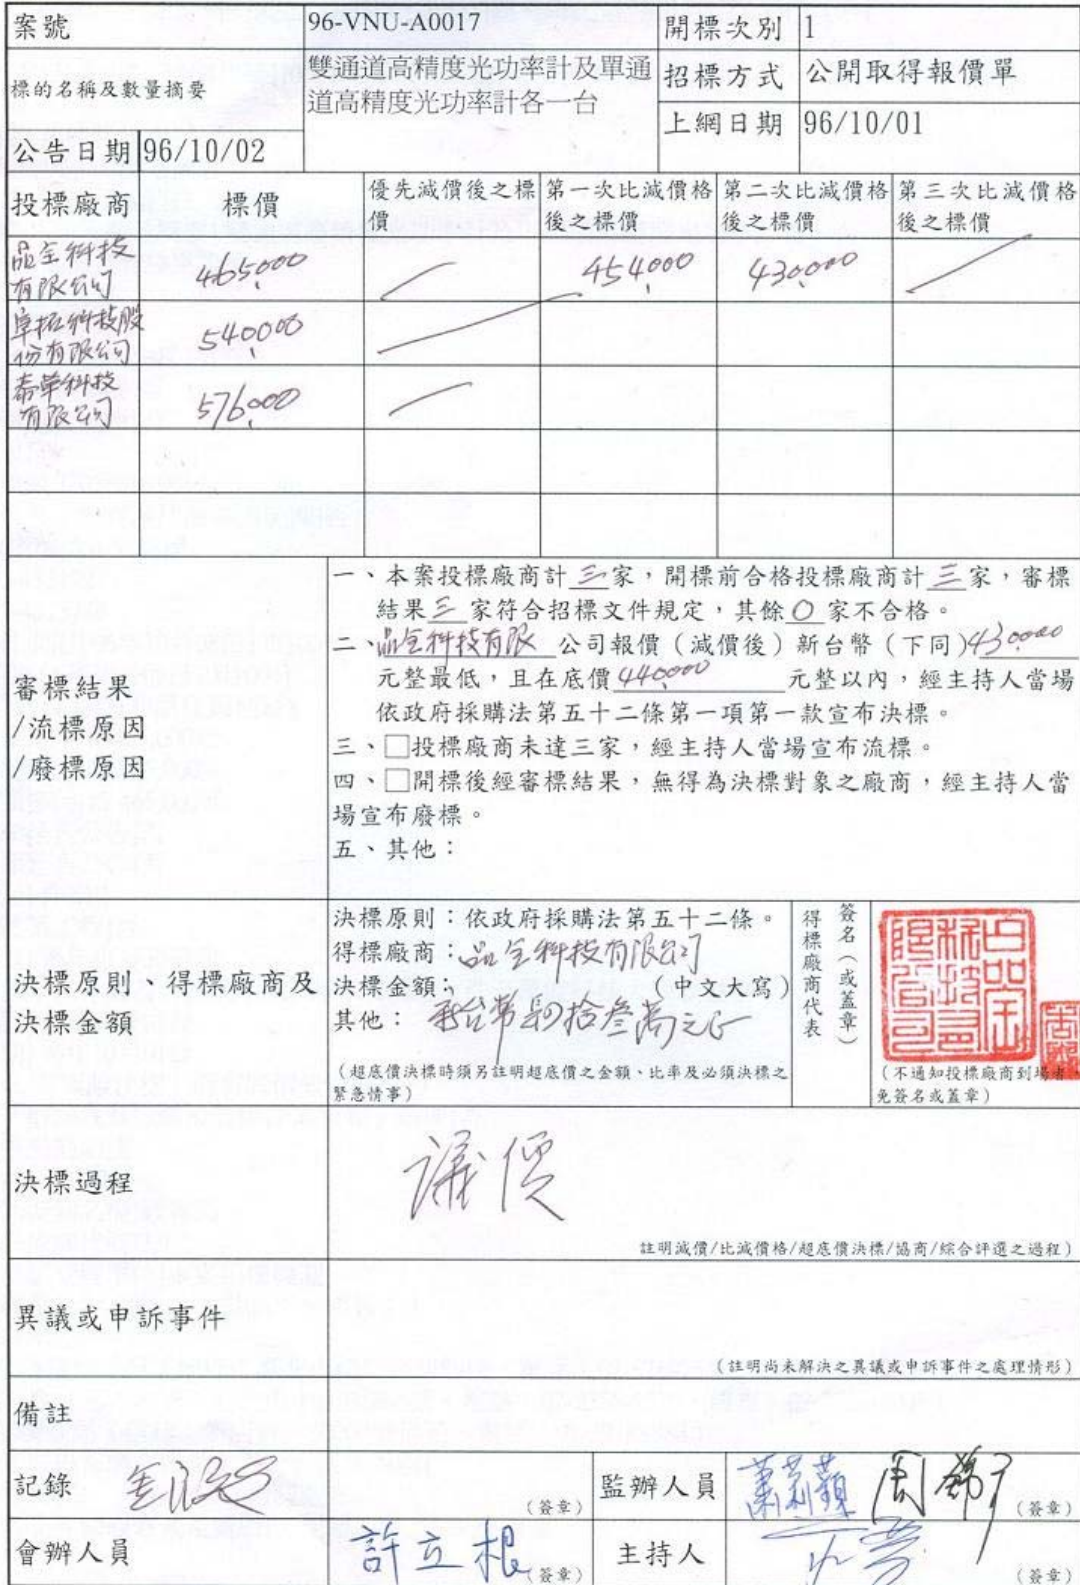 案號
96-VNU-A0017
開標次別
1
標的名稱及數量摘要
雙通道高精度光功率計及單通
道高精度光功率計各一台
招標方式
公開取得報價單
上網日期
96/10/01
公告日期
96/10/02
投標廠商
標價
優先減價後之標
價
第一次比減價格
後之標價
第二次比減價格
後之標價
第三次比減價格
後之標價
品全科技
有限公司
465,000
454,000
430,000
皐拓科技股
份有限公司
540,000
泰華科技
有限公司
576,000
審標結果
/流標原因
/廢標原因
一、本案投標廠商計三家，開標前合格投標廠商計三家，審標
結果三家符合招標文件規定，其餘0家不合格。
二、品全科技有限公司報價（減價後）新台幣（下同）430000
元整最低，且在底價440000元整以內，經主持人當場
依政府採購法第五十二條第一項第一款宣布決標。
三、□投標廠商未達三家，經主持人當場宣布流標。
四、□開標後經審標結果，無得為決標對象之廠商，經主持人當
場宣布廢標。
五、其他：
決標原則、得標廠商及
決標金額
決標原則：依政府採購法第五十二條。
得標廠商：品全科技有限公司
決標金額：（中文大寫）
其他：新台幣肆拾叁萬元正
（超底價決標時須另註明超底價之金額、比率及必須決標之
緊急情事）
得標廠商代表
簽名（或蓋章）
品全科技有限公司
（不通知投標廠商到場者，
免簽名或蓋章）
決標過程
議價
註明減價/比減價格/超底價決標/協商/綜合評選之過程）
異議或申訴事件
（註明尚未解決之異議或申訴事件之處理情形）
備註
記錄
（簽章）
監辦人員
（簽章）
會辦人員
許立根
（簽章）
主持人
（簽章）